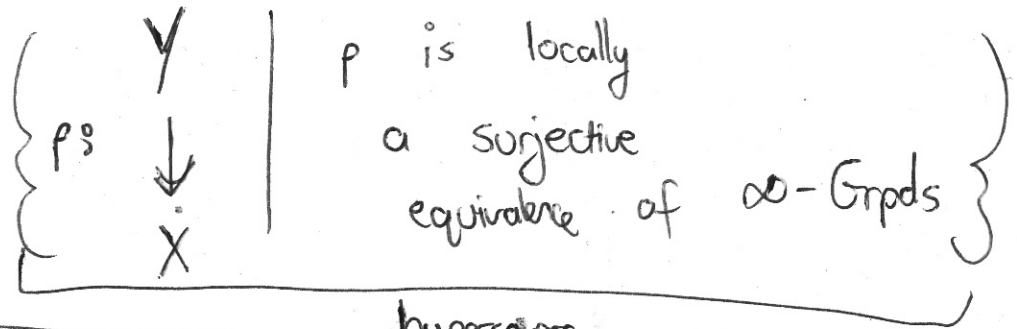 Y | p is locally
p: ↓ a surjective
equivalence of ∞-Grpds
X